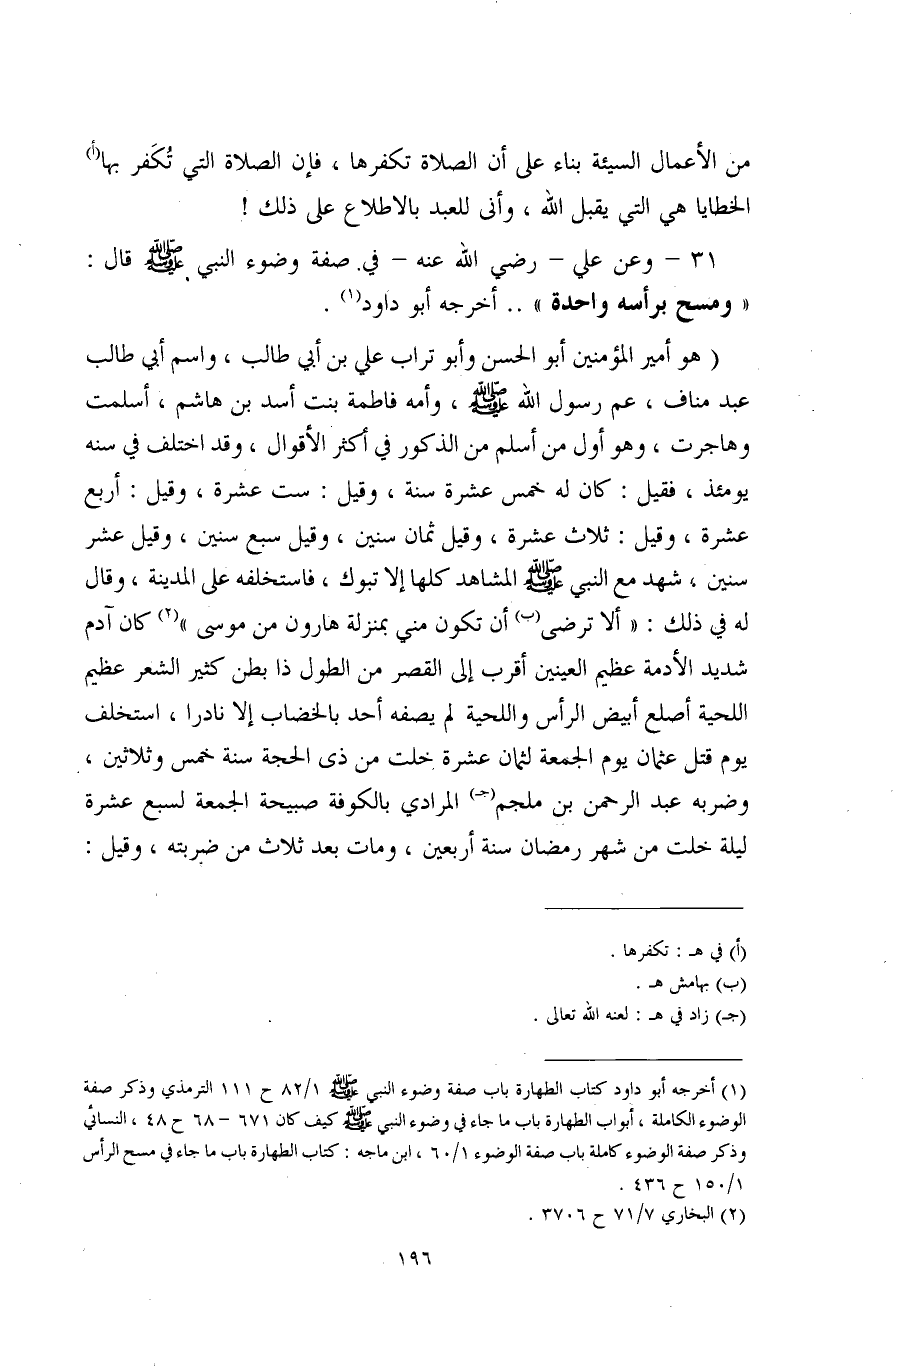 من الأعمال السيئة بناء على أن الصلاة تكفرها ، فإن الصلاة التي تُكَفر بها(أ)
الخطايا هي التي يقبل الله ، وأنى للعبد بالاطلاع على ذلك !
٣١ – وعن علي – رضي الله عنه – في صفة وضوء النبي ﷺ قال :
« ومسح برأسه واحدة » .. أخرجه أبو داود(١) .
( هو أمير المؤمنين أبو الحسن وأبو تراب علي بن أبي طالب ، واسم أبي طالب
عبد مناف ، عم رسول الله ﷺ ، وأمه فاطمة بنت أسد بن هاشم ، أسلمت
وهاجرت ، وهو أول من أسلم من الذكور في أكثر الأقوال ، وقد اختلف في سنه
يومئذ ، فقيل : كان له خمس عشرة سنة ، وقيل : ست عشرة ، وقيل : أربع
عشرة ، وقيل : ثلاث عشرة ، وقيل ثمان سنين ، وقيل سبع سنين ، وقيل عشر
سنين ، شهد مع النبي ﷺ المشاهد كلها إلا تبوك ، فاستخلفه على المدينة ، وقال
له في ذلك : « ألا ترضى(ب) أن تكون مني بمنزلة هارون من موسى »(٢) كان آدم
شديد الأدمة عظيم العينين أقرب إلى القصر من الطول ذا بطن كثير الشعر عظيم
اللحية أصلع أبيض الرأس واللحية لم يصفه أحد بالخضاب إلا نادرا ، استخلف
يوم قتل عثمان يوم الجمعة لثمان عشرة خلت من ذى الحجة سنة خمس وثلاثين ،
وضربه عبد الرحمن بن ملجم(جـ) المرادي بالكوفة صبيحة الجمعة لسبع عشرة
ليلة خلت من شهر رمضان سنة أربعين ، ومات بعد ثلاث من ضربته ، وقيل :
(أ) في هـ : تكفرها .
(ب) بهامش هـ .
(جـ) زاد في هـ : لعنه الله تعالى .
(١) أخرجه أبو داود كتاب الطهارة باب صفة وضوء النبي ﷺ ٨٢/١ ح ١١١ الترمذي وذكر صفة
الوضوء الكاملة ، أبواب الطهارة باب ما جاء في وضوء النبي ﷺ كيف كان ٦٧١ – ٦٨ ح ٤٨ ، النسائي
وذكر صفة الوضوء كاملة باب صفة الوضوء ٦٠/١ ، ابن ماجه : كتاب الطهارة باب ما جاء في مسح الرأس
١٥٠/١ ح ٤٣٦ .
(٢) البخاري ٧١/٧ ح ٣٧٠٦ .
١٩٦